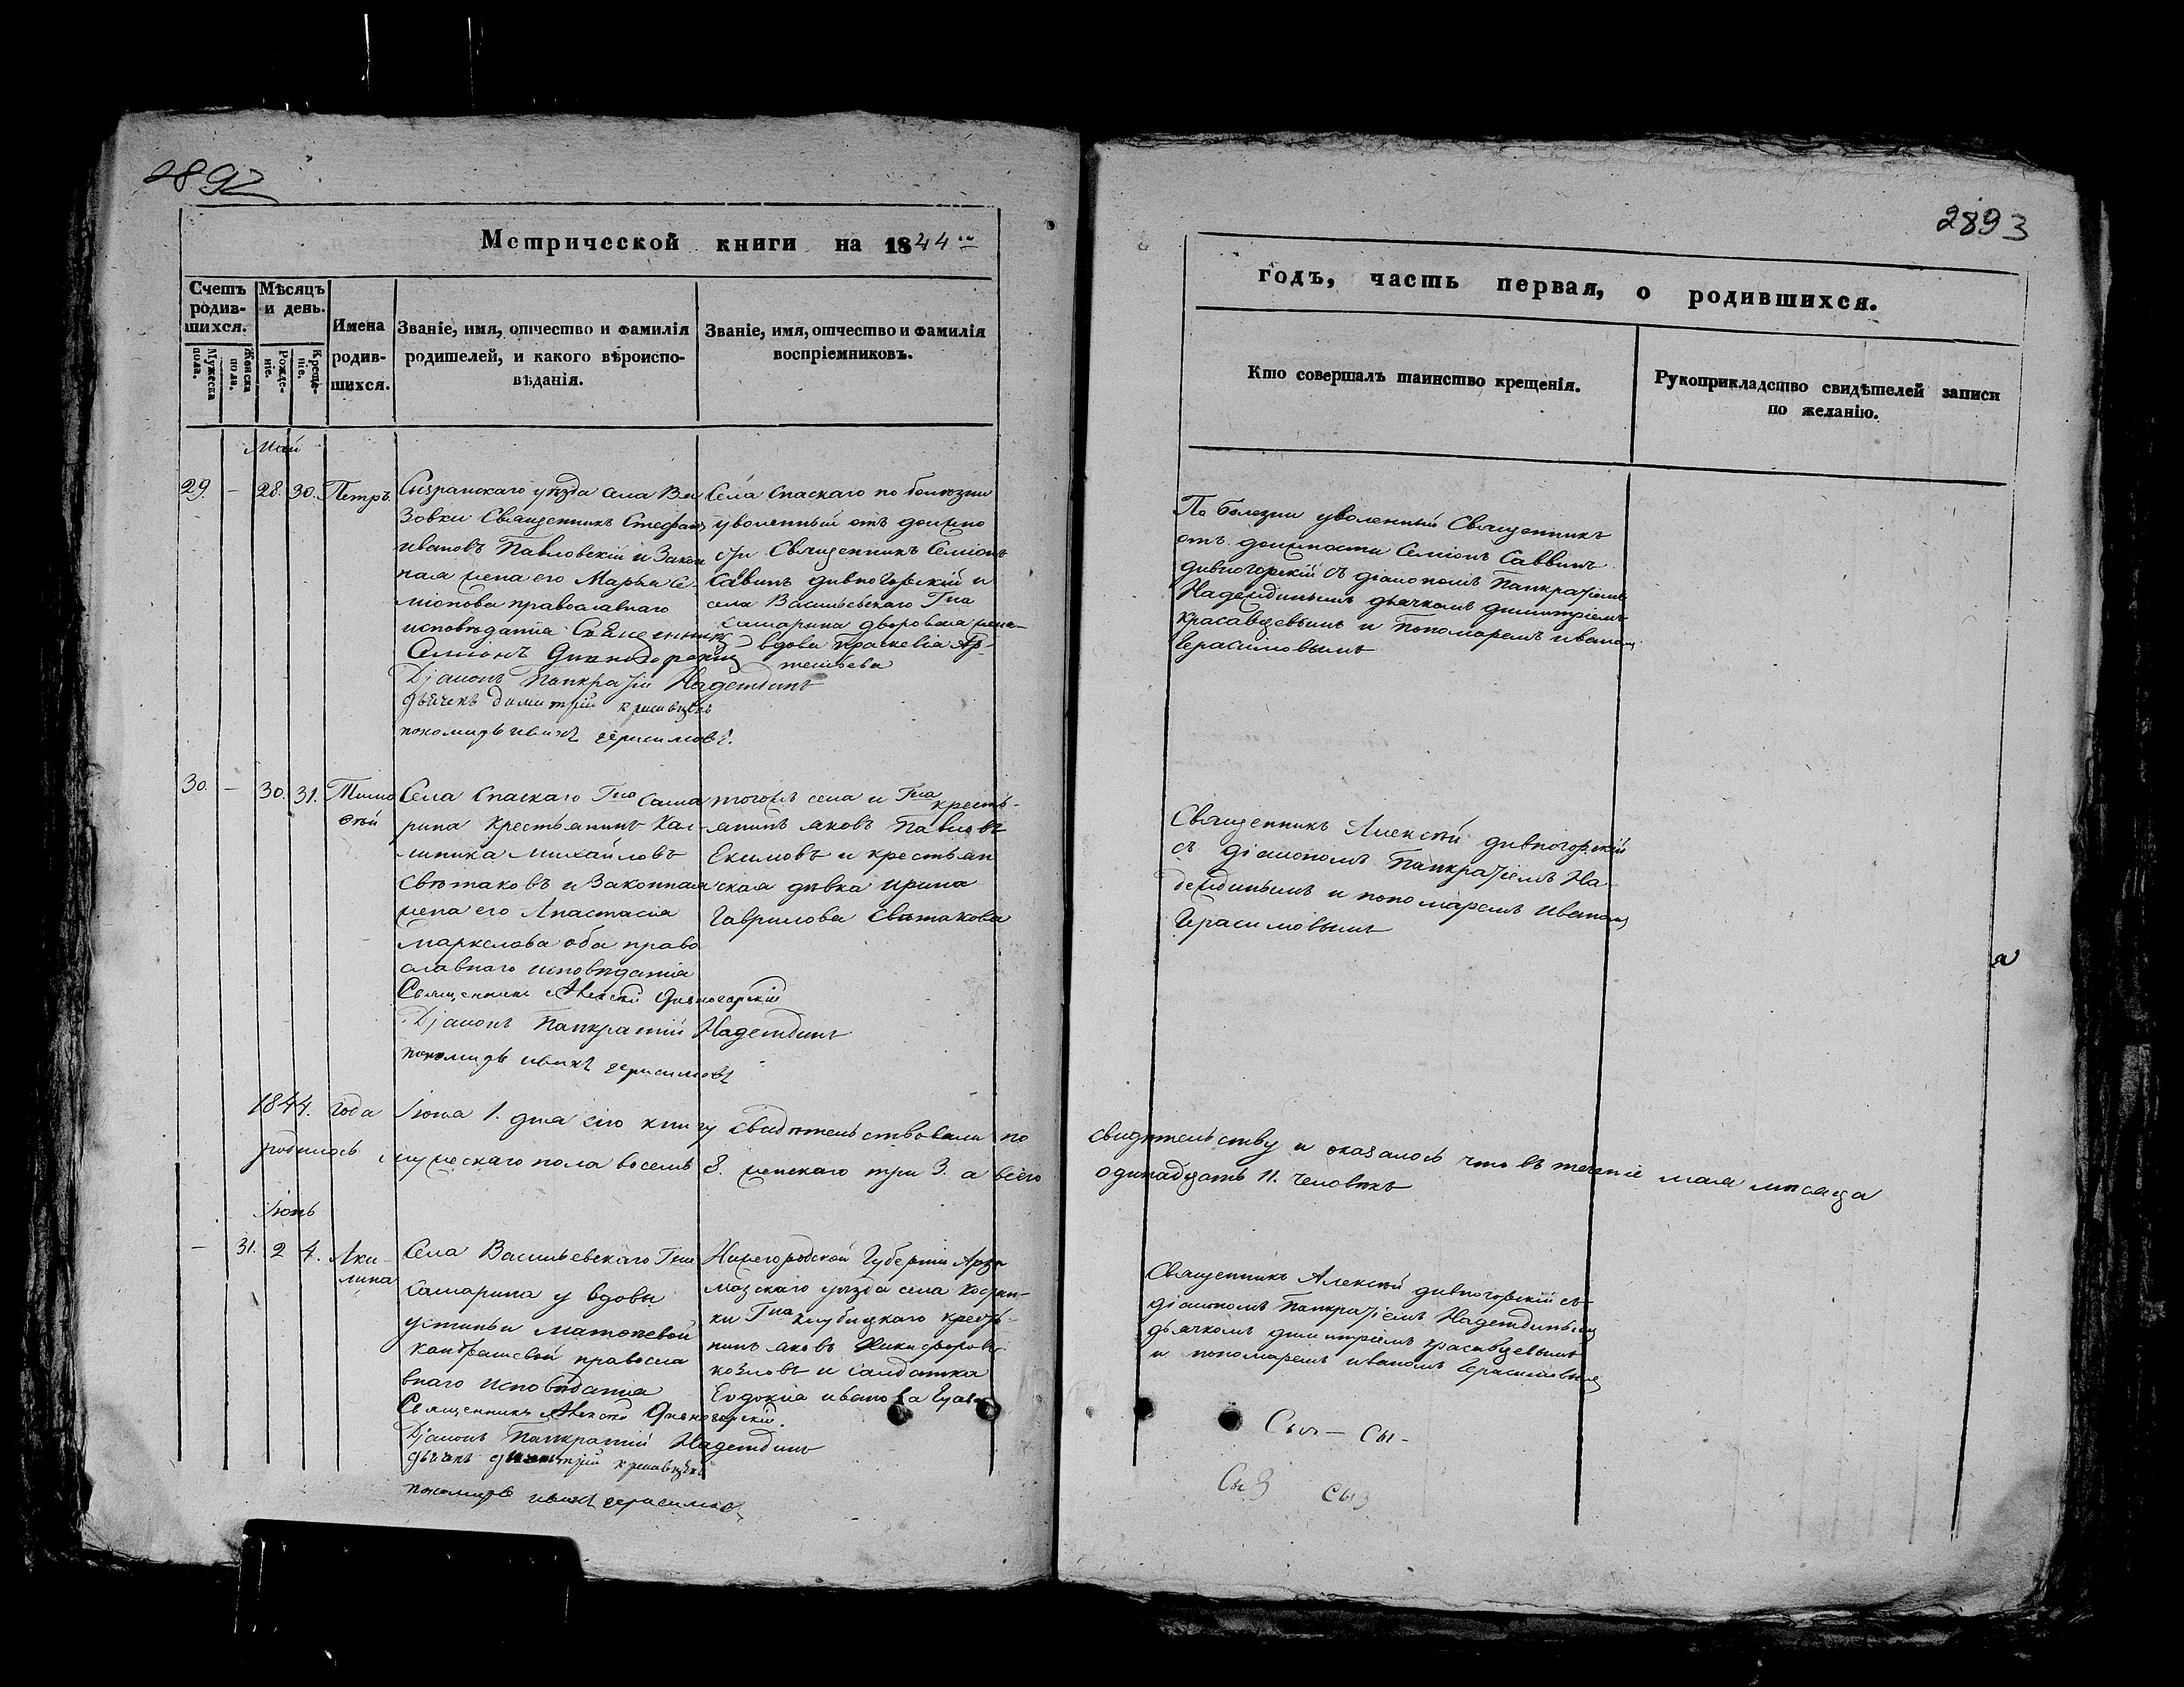 2892
Метрической книги на 1844ый
Счетъ родив-шихся.
Мѣсяцъ и день.
Мужеска пола.
Женска пола.
Рожде-ніе.
Креще-ніе.
Имена
родив-
шихся.
Званіе, имя, отчество и фамилія
родителей, и какого вѣроиспо-
вѣданія.
Званіе, имя, отчество и фамилія
воспріемниковъ.
Май
29. — 28. 30. Петръ
Сызранскаго уѣзда села
зовки Священникъ Стефанъ
ивановъ Павловскій и Закон
ная жена его Марья Се-
міонова православнаго
исповѣданіа Священникъ
Семионъ Дивногорскій
Діаконъ Панкратій Надеждинъ
дьячекъ димитрій красавцевъ
пономарь иванъ герасимовъ.
Села Спаскаго по болѣзни
уволенный отъ должно
сти Священникъ Семіонъ
Савинъ дивногорскій и
села Васильевскаго Гна
Самарина дворовая жена
вдова Праскевіа Ар-
темьева
30. — 30. 31. Тимо
ѳей
Села Спаскаго Гна Сама
рина крестьянинъ Кал-
линика Михайловъ
Свѣтаковъ и Законная
жена его Анастасіа
маркелова оба право
славнаго исповѣданіа
Священникъ Алексѣй Дивногорскій
Діаконъ Панкратій Надеждинъ
пономарь иванъ герасимовъ
тогожъ села и Гна кресть-
янинъ яковъ Павловъ
Екимовъ и крестьян
ская дѣвка ирина
Гаврилова Свѣтакова
1844. года Іюня 1. дня сію книгу свидѣтельствовали по
родилось мужескаго пола восемь 8. женскаго три 3. а всего
Іюнь
— 31. 2 4. Аки-
лина
Села Васильевскаго Гна
Самарина у вдовы
устиньи матвѣевой
православ
внаго исповѣданіа
Священникъ Алексѣй Дивногорскій.
Діаконъ Панкратій Надеждинъ
дьячекъ димитрій красавцевъ
пономарь иванъ герасимовъ
Нижегородской Губерніи Арза
мазскаго уѣзда села
ки Гна кресть-
нинъ яковъ Никифоровъ
козловъ и Салдатка
Евдокиа иванова
2893
годъ, часть первая, о родившихся.
Кто совершалъ таинство крещенія.
Рукоприкладство свидѣтелей записи
по желанію.
По болезни уволенный Священникъ
отъ должности Семіонъ Саввинъ
дивногорскій съ діакономъ Панкратіемъ
Надеждинымъ дьячкомъ димитріемъ
красавцевымъ и Пономаремъ иваномъ
Герасимовымъ
Священникъ Алексѣй дивногорскій
съ діакономъ Панкратіемъ На-
деждинымъ и пономаремъ иваномъ
Герасимовымъ
свидѣтельству и оказалось что въ теченіе мая мѣсяца
одинадцать 11. человѣкъ
Священникъ Алексѣй дивногорскій съ
діакономъ Панкратіемъ Надеждинымъ
дьячкомъ димитріемъ красавцевымъ
и пономаремъ иваномъ Герасимовымъ
Сыз — Сы -
Сыз Сыз